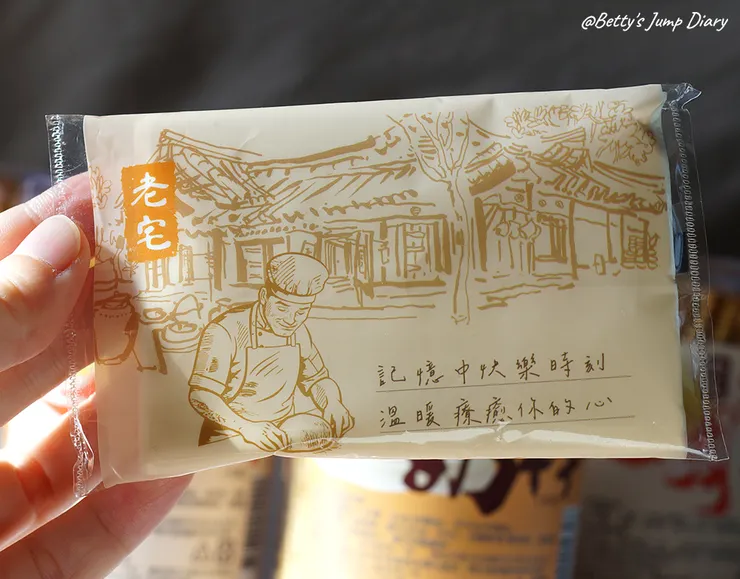 @Betty's Jump Diary
老宅
記憶中快樂時刻
溫暖療癒你的心